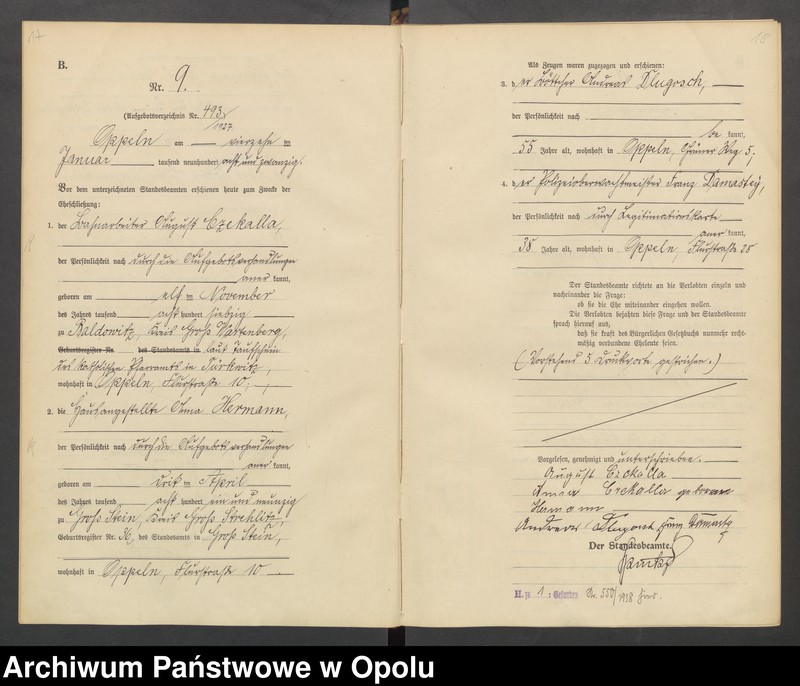 17
B.
Nr. 9.
(Aufgebotsverzeichnis Nr. 493/1927
Oppeln am vierzehn ten
Januar tausend neunhundert acht und zwanzig.
Vor dem unterzeichneten Standesbeamten erschienen heute zum Zwecke der
Eheschließung:
1. der Bahnarbeiter August Czekalla,
der Persönlichkeit nach durch die Aufgebotsverhandlungen
aner kannt,
geboren am elf ten November
des Jahres tausend acht hundert siebzig
zu Baldowitz, Kreis Groß Wartenberg,
Geburtsregister Nr. des Standesamts in laut Taufschein
des katholischen Pfarramts in Türkwitz,
wohnhaft in Oppeln, Flurstraße 10,
2. die Hausangestellte Anna Hermann,
der Persönlichkeit nach durch die Aufgebotsverhandlungen
aner kannt,
geboren am dritten April
des Jahres tausend acht hundert ein und neunzig
zu Groß Stein, Kreis Groß Strehlitz,
Geburtsregister Nr. des Standesamts in Groß Stein,
wohnhaft in Oppeln, Flurstraße 10
18
Als Zeugen waren zugezogen und erschienen:
3. der Böttcher Andreas Dlugosch,
der Persönlichkeit nach
be kannt,
55 Jahre alt, wohnhaft in Oppeln, Weg 5;
4. der Polizeioberwachtmeister Franz Damastey,
der Persönlichkeit nach durch Legitimationskarte
aner kannt,
38 Jahre alt, wohnhaft in Oppeln, Flurstraße 28
Der Standesbeamte richtete an die Verlobten einzeln und
nacheinander die Frage:
ob sie die Ehe miteinander eingehen wollen.
Die Verlobten bejahten diese Frage und der Standesbeamte
sprach hierauf aus,
daß sie kraft des Bürgerlichen Gesetzbuchs nunmehr recht-
mäßig verbundene Eheleute seien.
(Vorstehend 5 Druckworte gestrichen.)
Vorgelesen, genehmigt und unterschrieben.
August Czekalla
Anna Czekalla geborene
Hermann
Andreas Dlugosch Franz Damastey
Der Standesbeamte.
H. zu 1: Gestorben Nr. 550/1938
Archiwum Państwowe w Opolu